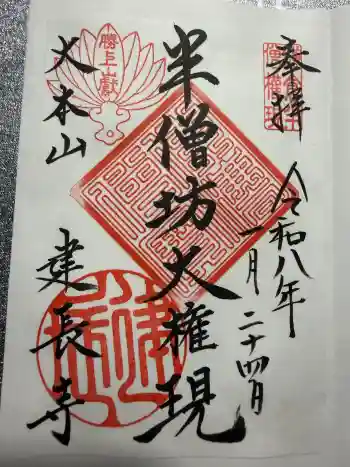 奉拝
令和八年
一月二十四日
半僧坊大権現
勝上嶽
大本山
建長寺